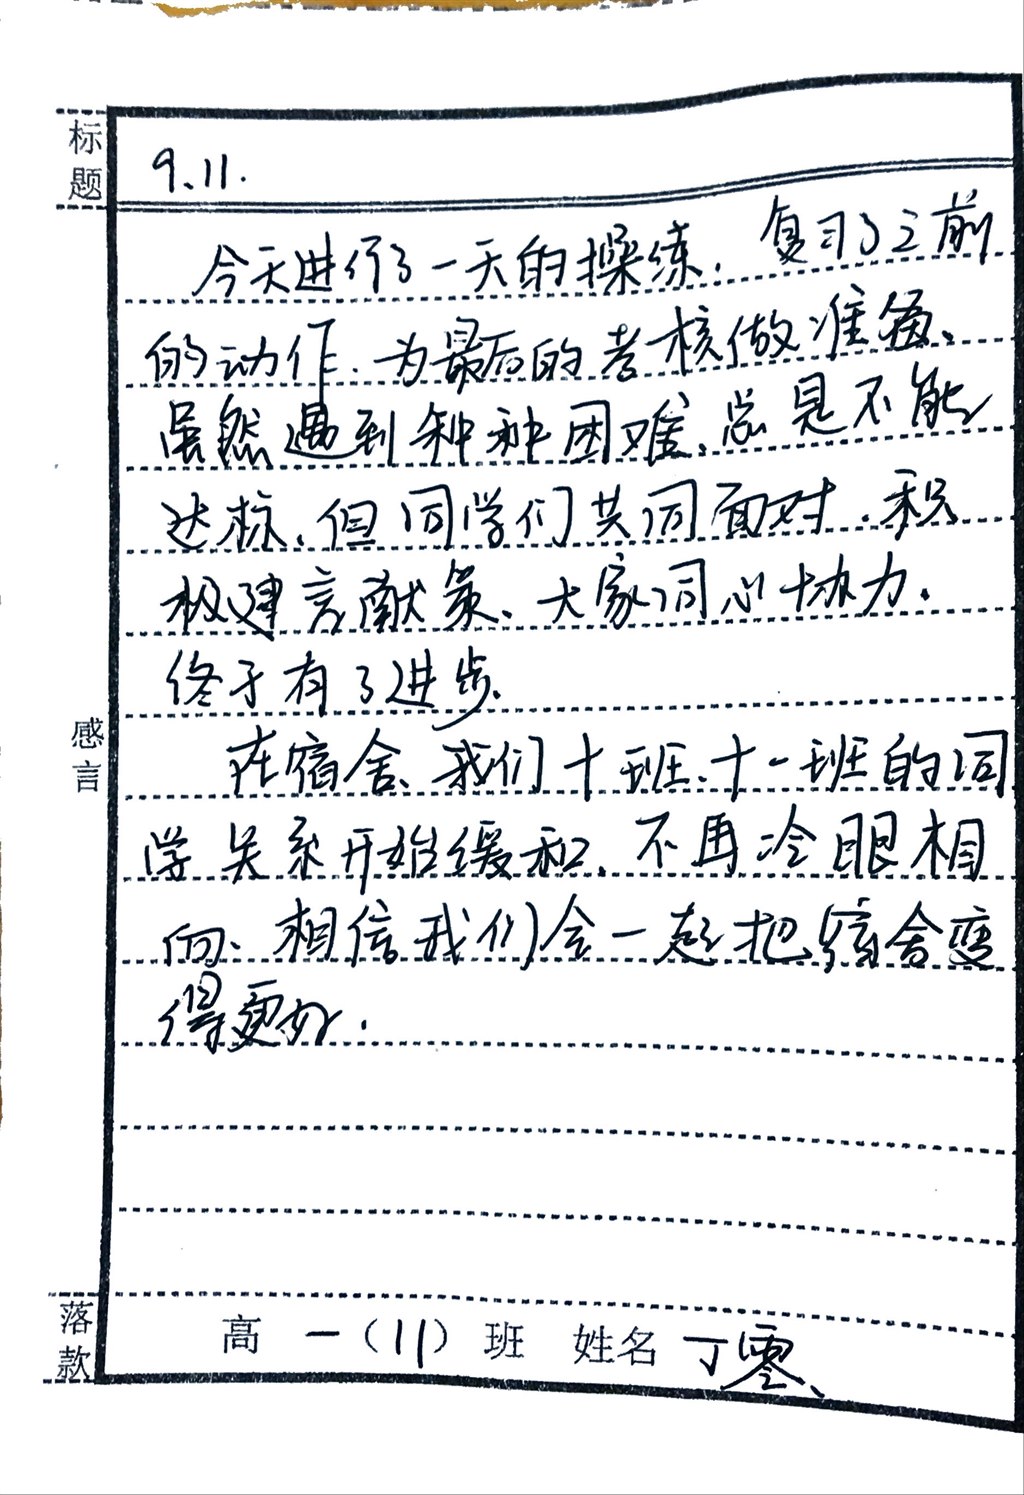 标题
9.11.
今天进行了一天的操练，复习了之前
的动作，为最后的考核做准备、
虽然遇到种种困难、总是不能
达标、但同学们共同面对，积
极建言献策、大家同心协力，
终于有了进步、
感言
在宿舍、我们十班、十一班的同
学关系开始缓和，不再冷眼相
向、相信我们会一起把宿舍变
得更好．
落款
高一（11）班 姓名 丁零